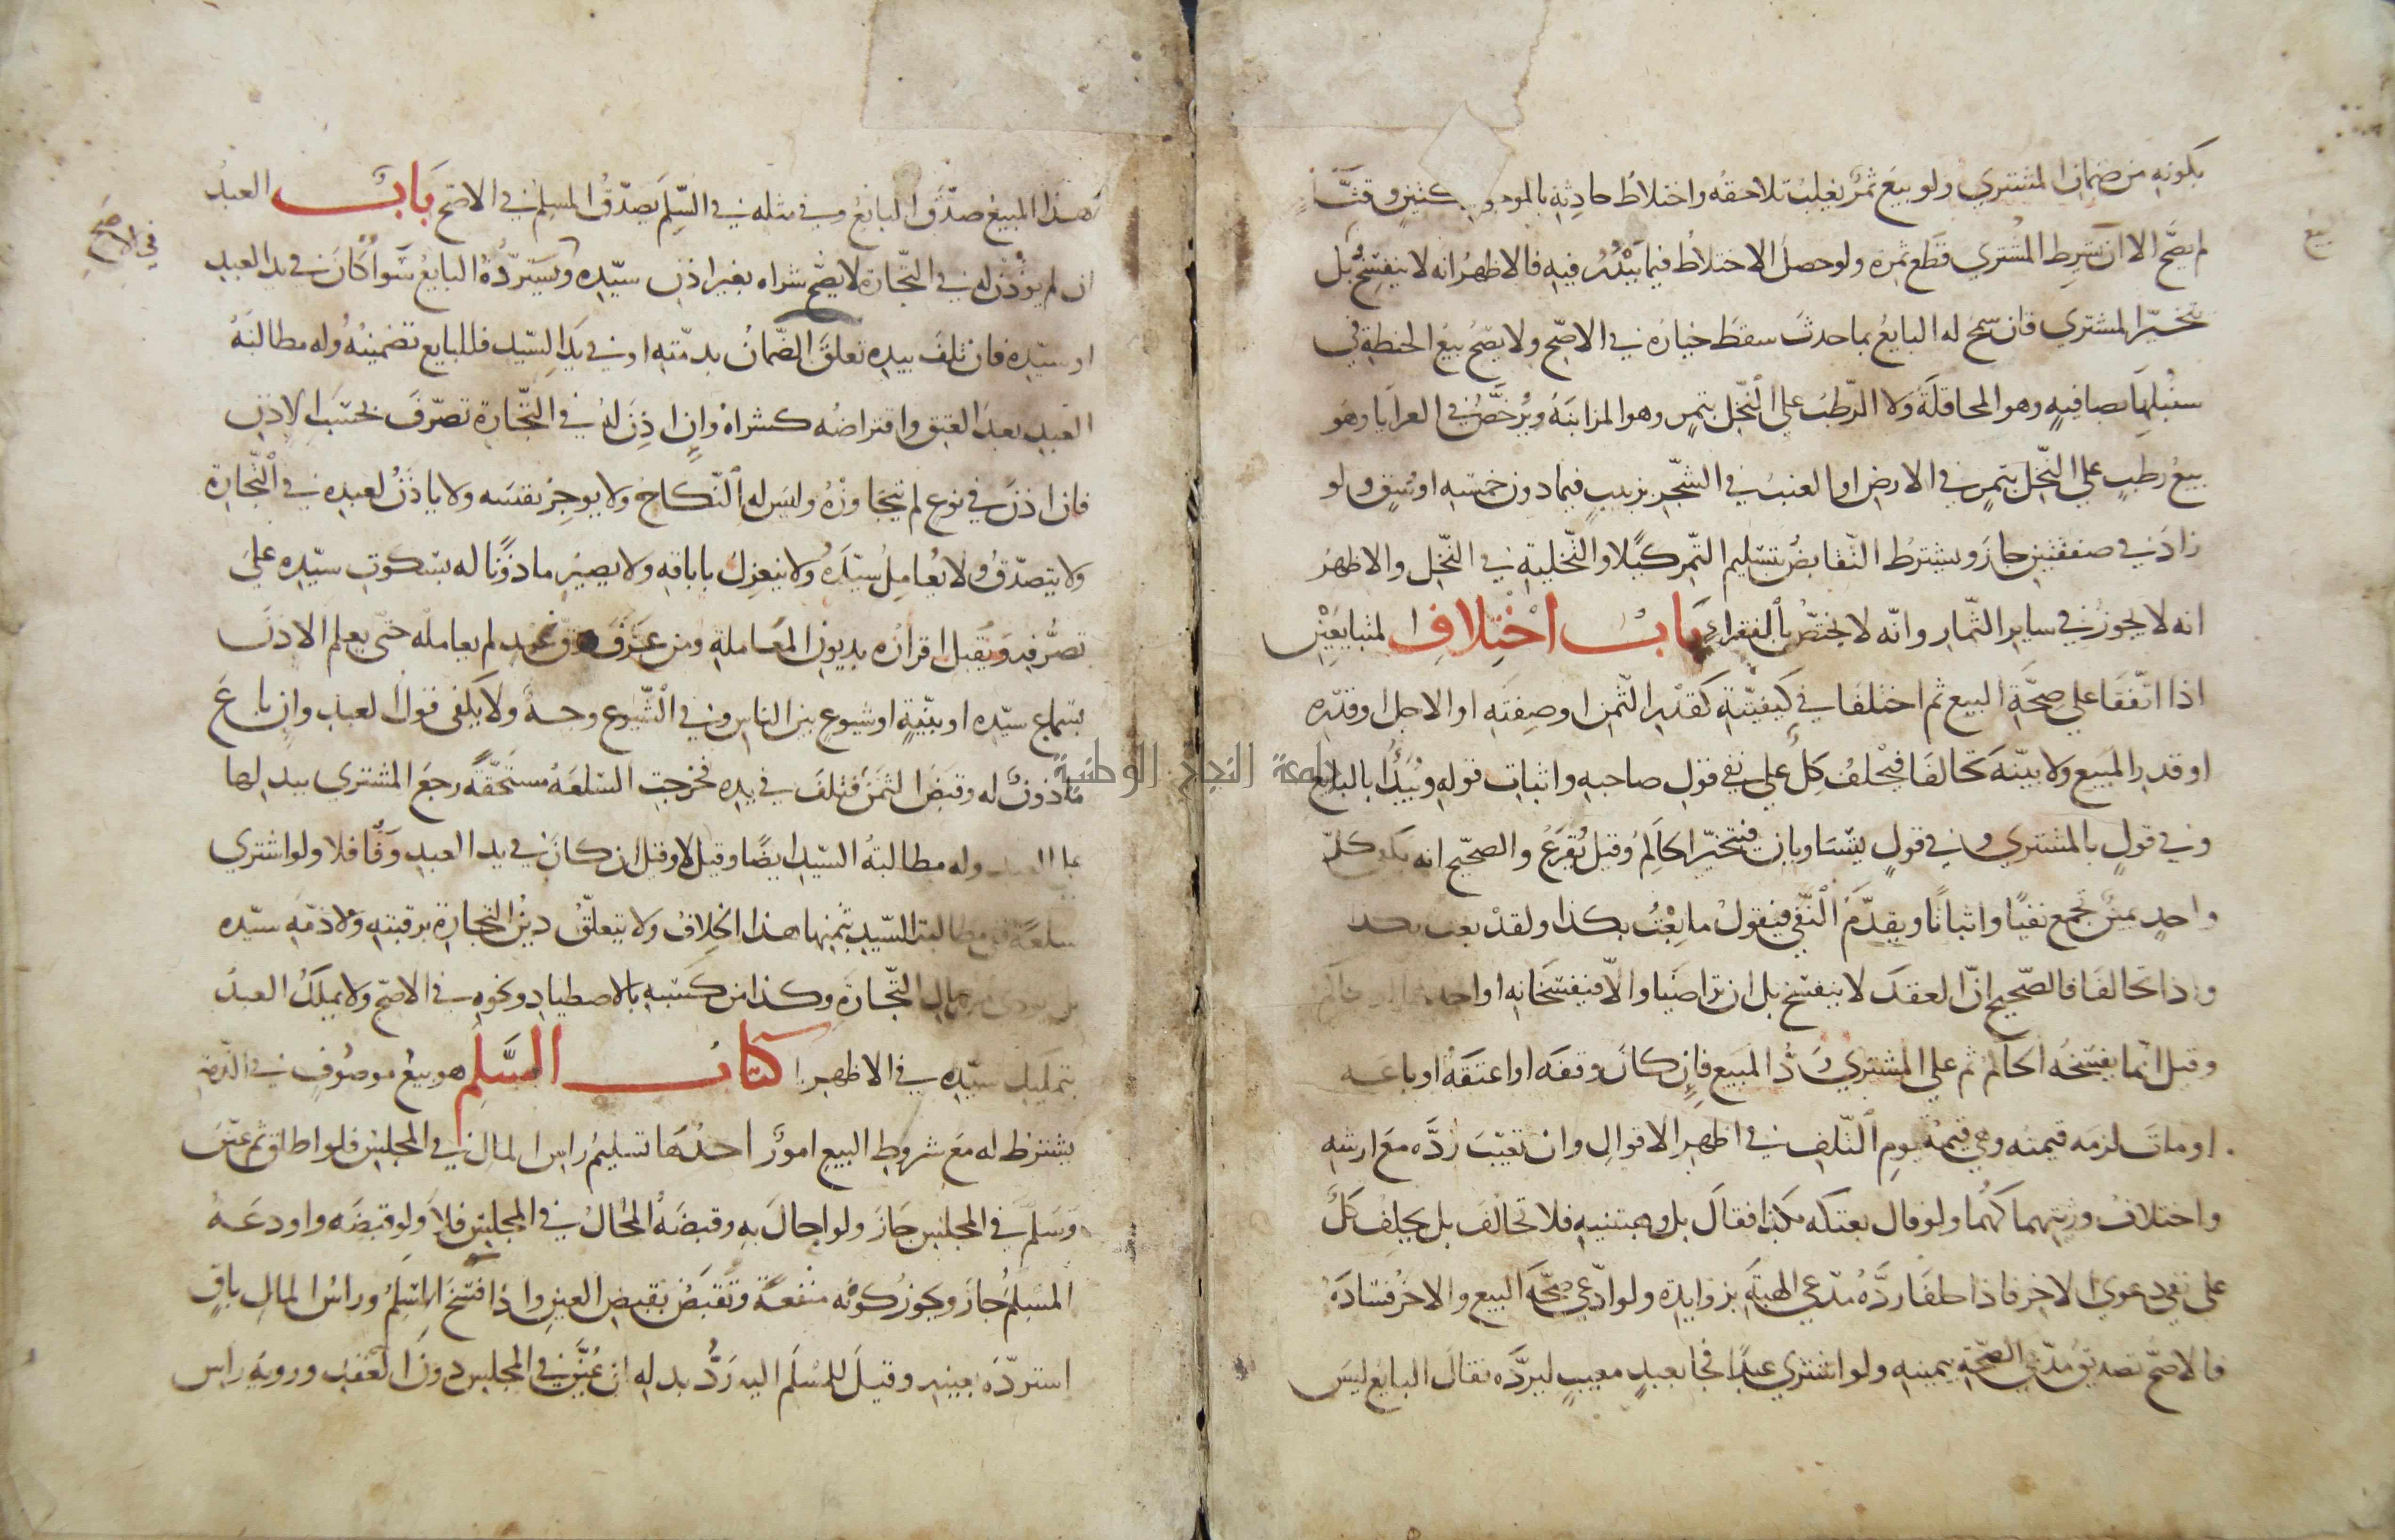 بكونه من ضمان المشتري ولو بيع ثمر يغلب تلاحقه واختلاط حادثه بالموجود كتين وقثاء
لم يصح الا ان يشرط المشتري قطع ثمره ولو حصل الاختلاط فيما يندر فيه فالاظهر انه لا ينفسخ بل
يتخير المشتري فان سمح له البايع بما حدث سقط خياره في الاصح ولا يصح بيع الحنطة في
سنبلها بصافيه وهو المحاقلة ولا الرطب على النخل بتمر وهو المزابنة ويرخص في العرايا وهو
بيع رطب على النخل بتمر في الارض او العنب في الشجر بزبيب فيما دون خمسه اوسق ولو
زاد في صفقتين جاز ويشترط التقابض بتسليم التمر كيلا والتخلية في النخل والاظهر
انه لا يجوز في ساير الثمار وانه لا يختص بالفقراء باب اختلاف المتبايعين
اذا اتفقا على صحة البيع ثم اختلفا في كيفيته كقدر الثمن او صفته او الاجل او قدره
او قدر المبيع ولا بينة تحالفا فيحلف كل على نفي قول صاحبه واثبات قوله ويبدأ بالبايع
وفي قول بالمشتري وفي قول يتساويان فيتخير الحاكم وقيل يقرع والصحيح انه يكفي كل
واحد يمين تجمع نفيا واثباتا ويقدم النفي فيقول ما بعت بكذا ولقد بعت بكذا
واذا تحالفا فالصحيح ان العقد لا ينفسخ بل ان تراضيا والا فيفسخانه او احدهما او الحاكم
وقيل انما يفسخه الحاكم ثم على المشتري رد المبيع فان كان وقفه او اعتقه او باعه
او مات لزمه قيمته وهي قيمة يوم التلف في اظهر الاقوال وان تعيب رده مع ارشه
واختلاف ورثتهما كهما ولو قال بعتكه بكذا فقال بل وهبتنيه فلا تحالف بل يحلف كل
على نفي دعوى الاخر فاذا حلفا رده مدعي الهبة بزوايده ولو ادعى صحة البيع والاخر فساده
فالاصح تصديق مدعي الصحة بيمينه ولو اشترى عبدا فجا بعبد معيب ليرده فقال البايع ليس
بيع
هذا المبيع صدق البايع وفي مثله في السلم يصدق المسلم في الاصح باب العبد
ان لم يوذن له في التجارة لا يصح شراه بغير اذن سيده ويسترده البايع سوا كان في يد العبد
او سيده فان تلف بيده تعلق الضمان بذمته او في يد السيد فللبايع تضمينه وله مطالبة
العبد بعد العتق واقتراضه كشراه وان اذن له في التجارة تصرف بحسب الاذن
فان اذن في نوع لم يتجاوزه وليس له النكاح ولا يوجر نفسه ولا ياذن لعبده في التجارة
ولا يتصدق ولا يعامل سيده ولا ينعزل باباقه ولا يصير ماذونا له بسكوت سيده على
تصرفه ويقبل اقراره بديون المعاملة ومن عرف رق عبد لم يعامله حتى يعلم الاذن
بسماع سيده او بينة او شيوع بين الناس وفي الشيوع وجه ولا يكفي قول العبد وان باع
ماذون له وقبض الثمن فتلف في يده فخرجت السلعة مستحقة رجع المشتري ببدلها
على العبد وله مطالبة السيد ايضا وقيل لا وقيل ان كان في يد العبد وفا فلا ولو اشترى
سلعة ففي مطالبة السيد بثمنها هذا الخلاف ولا يتعلق دين التجارة برقبته ولا ذمه سيده
بل يودى من مال التجارة وكذا من كسبه بالاصطياد ونحوه في الاصح ولا يملك العبد
بتمليك سيده في الاظهر كتاب السلم هو بيع موصوف في الذمة
يشترط له مع شروط البيع امور احدها تسليم راس المال في المجلس فلو اطلق ثم عين
وسلم في المجلس جاز ولو احال به وقبضه المحال في المجلس فلا ولو قبضه واودعه
المسلم جاز ويجوز كونه منفعة وتقبض بقبض العين واذا فسخ السلم وراس المال باق
استرده بعينه وقيل للمسلم اليه رد بدله ان عين في المجلس دون العقد وروية راس
في الاصح
جامعة النجاح الوطنية